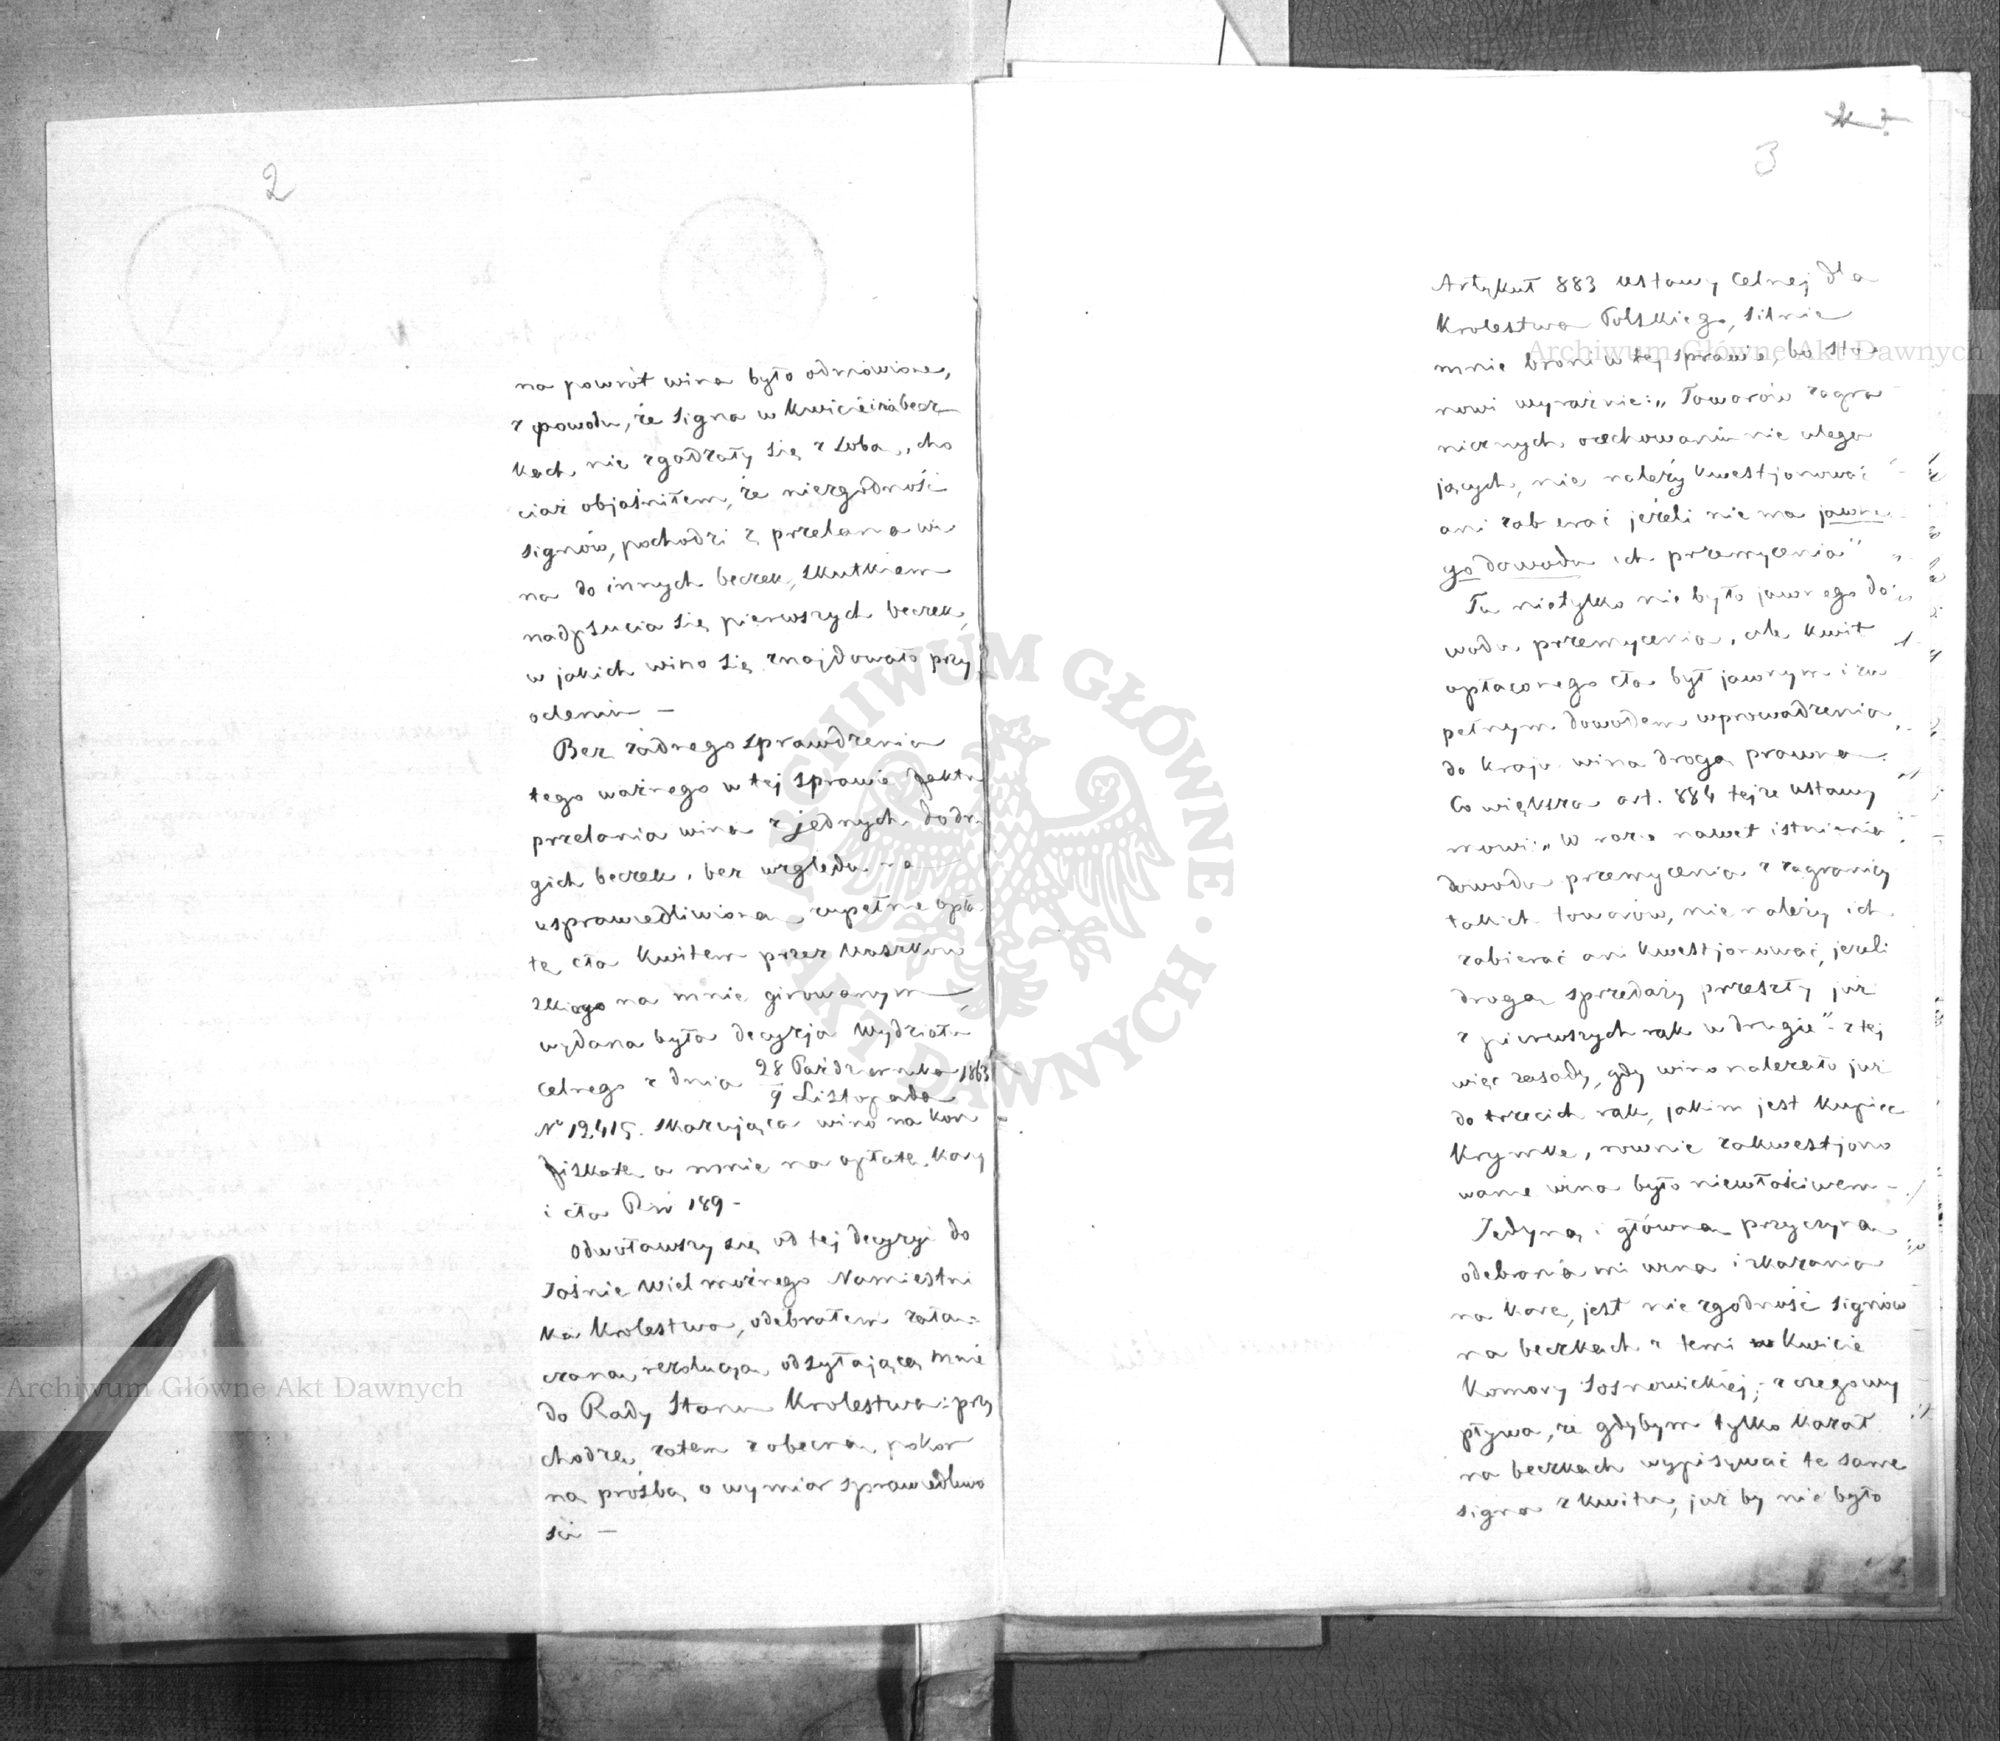 2
na powrót wina było odmówione,
z powodu, że signa w kwicie i na becz
kach nie zgadzały się z sobą, cho
ciaż objaśniłem, że niezgodność
signów, pochodzi z przelana wi
na do innych beczek, skutkiem
nadpsucia się pierwszych beczek,
w jakich wino się znajdowało przy
ocleniu —
Bez żadnego sprawdzenia
tego ważnego w tej sprawie faktu
przelania wina z jednych do dru
gich beczek, bez względu na
usprawiedliwioną zupełnie opła
tę cła kwitem przez Moszkow
skiego na mnie girowanym,
wydana była decyzja Wydziału
Celnego z dnia 28 Października 1863
9 Listopada
No 12,415. skazująca wino na kon
fiskatę a mnie na opłatę kary
i cła Rsr 189 –
Odwoławszy się od tej decyzyi do
Jaśnie Wielmożnego Namiestni
ka Krolestwa, odebrałem załą=
czoną rezolucją, odsyłającą mnie
do Rady Stanu Krolestwa: przy
chodzę zatem z obecną pokor
ną prośbą o wymiar sprawiedliwo
ści —
3
Artykuł 883 ustawy Celnej dla
Krolestwa Polskiego, silnie
mnie broni w tej sprawie, bo sta=
nowi wyraźnie: „Towarów zagra
nicznych ocechowaniu nie ulega
jących, nie należy kwestjonować
ani zabierać jeżeli nie ma jawne
go dowodu ich przemycenia"
Tu nietylko nie było jawnego do
wodu przemycenia, ale kwit
opłaconego cła był jawnym i zu
pełnym dowodem wprowadzenia
do kraju wina drogą prawną.
Co większa art. 884 tejże ustawy
mowi: „W razie nawet istnienia
dowodu przemycenia z zagranicy
takich towarów, nie należy ich
zabierać ani kwestjonować, jeżeli
drogą sprzedaży przeszły już
z pierwszych rąk w drugie" – z tej
więc zasady, gdy wino należało już
do trzecich rąk, jakim jest kupiec
Krymke, rownie zakwestjono
wanie wina było niewłaściwem –
Jedyną i główną przyczyną
odebrania mi wina i skazania
na karę, jest nie zgodność signów
na beczkach z temi w kwicie
Komory Sosnowickiej; z czego wy
pływa, że gdybym tylko kazał
na beczkach wypisywać te same
signa z kwitu, już by nie było
Archiwum Główne Akt Dawnych
Archiwum Główne Akt Dawnych
ARCHIWUM GŁÓWNE · AKT DAWNYCH ·